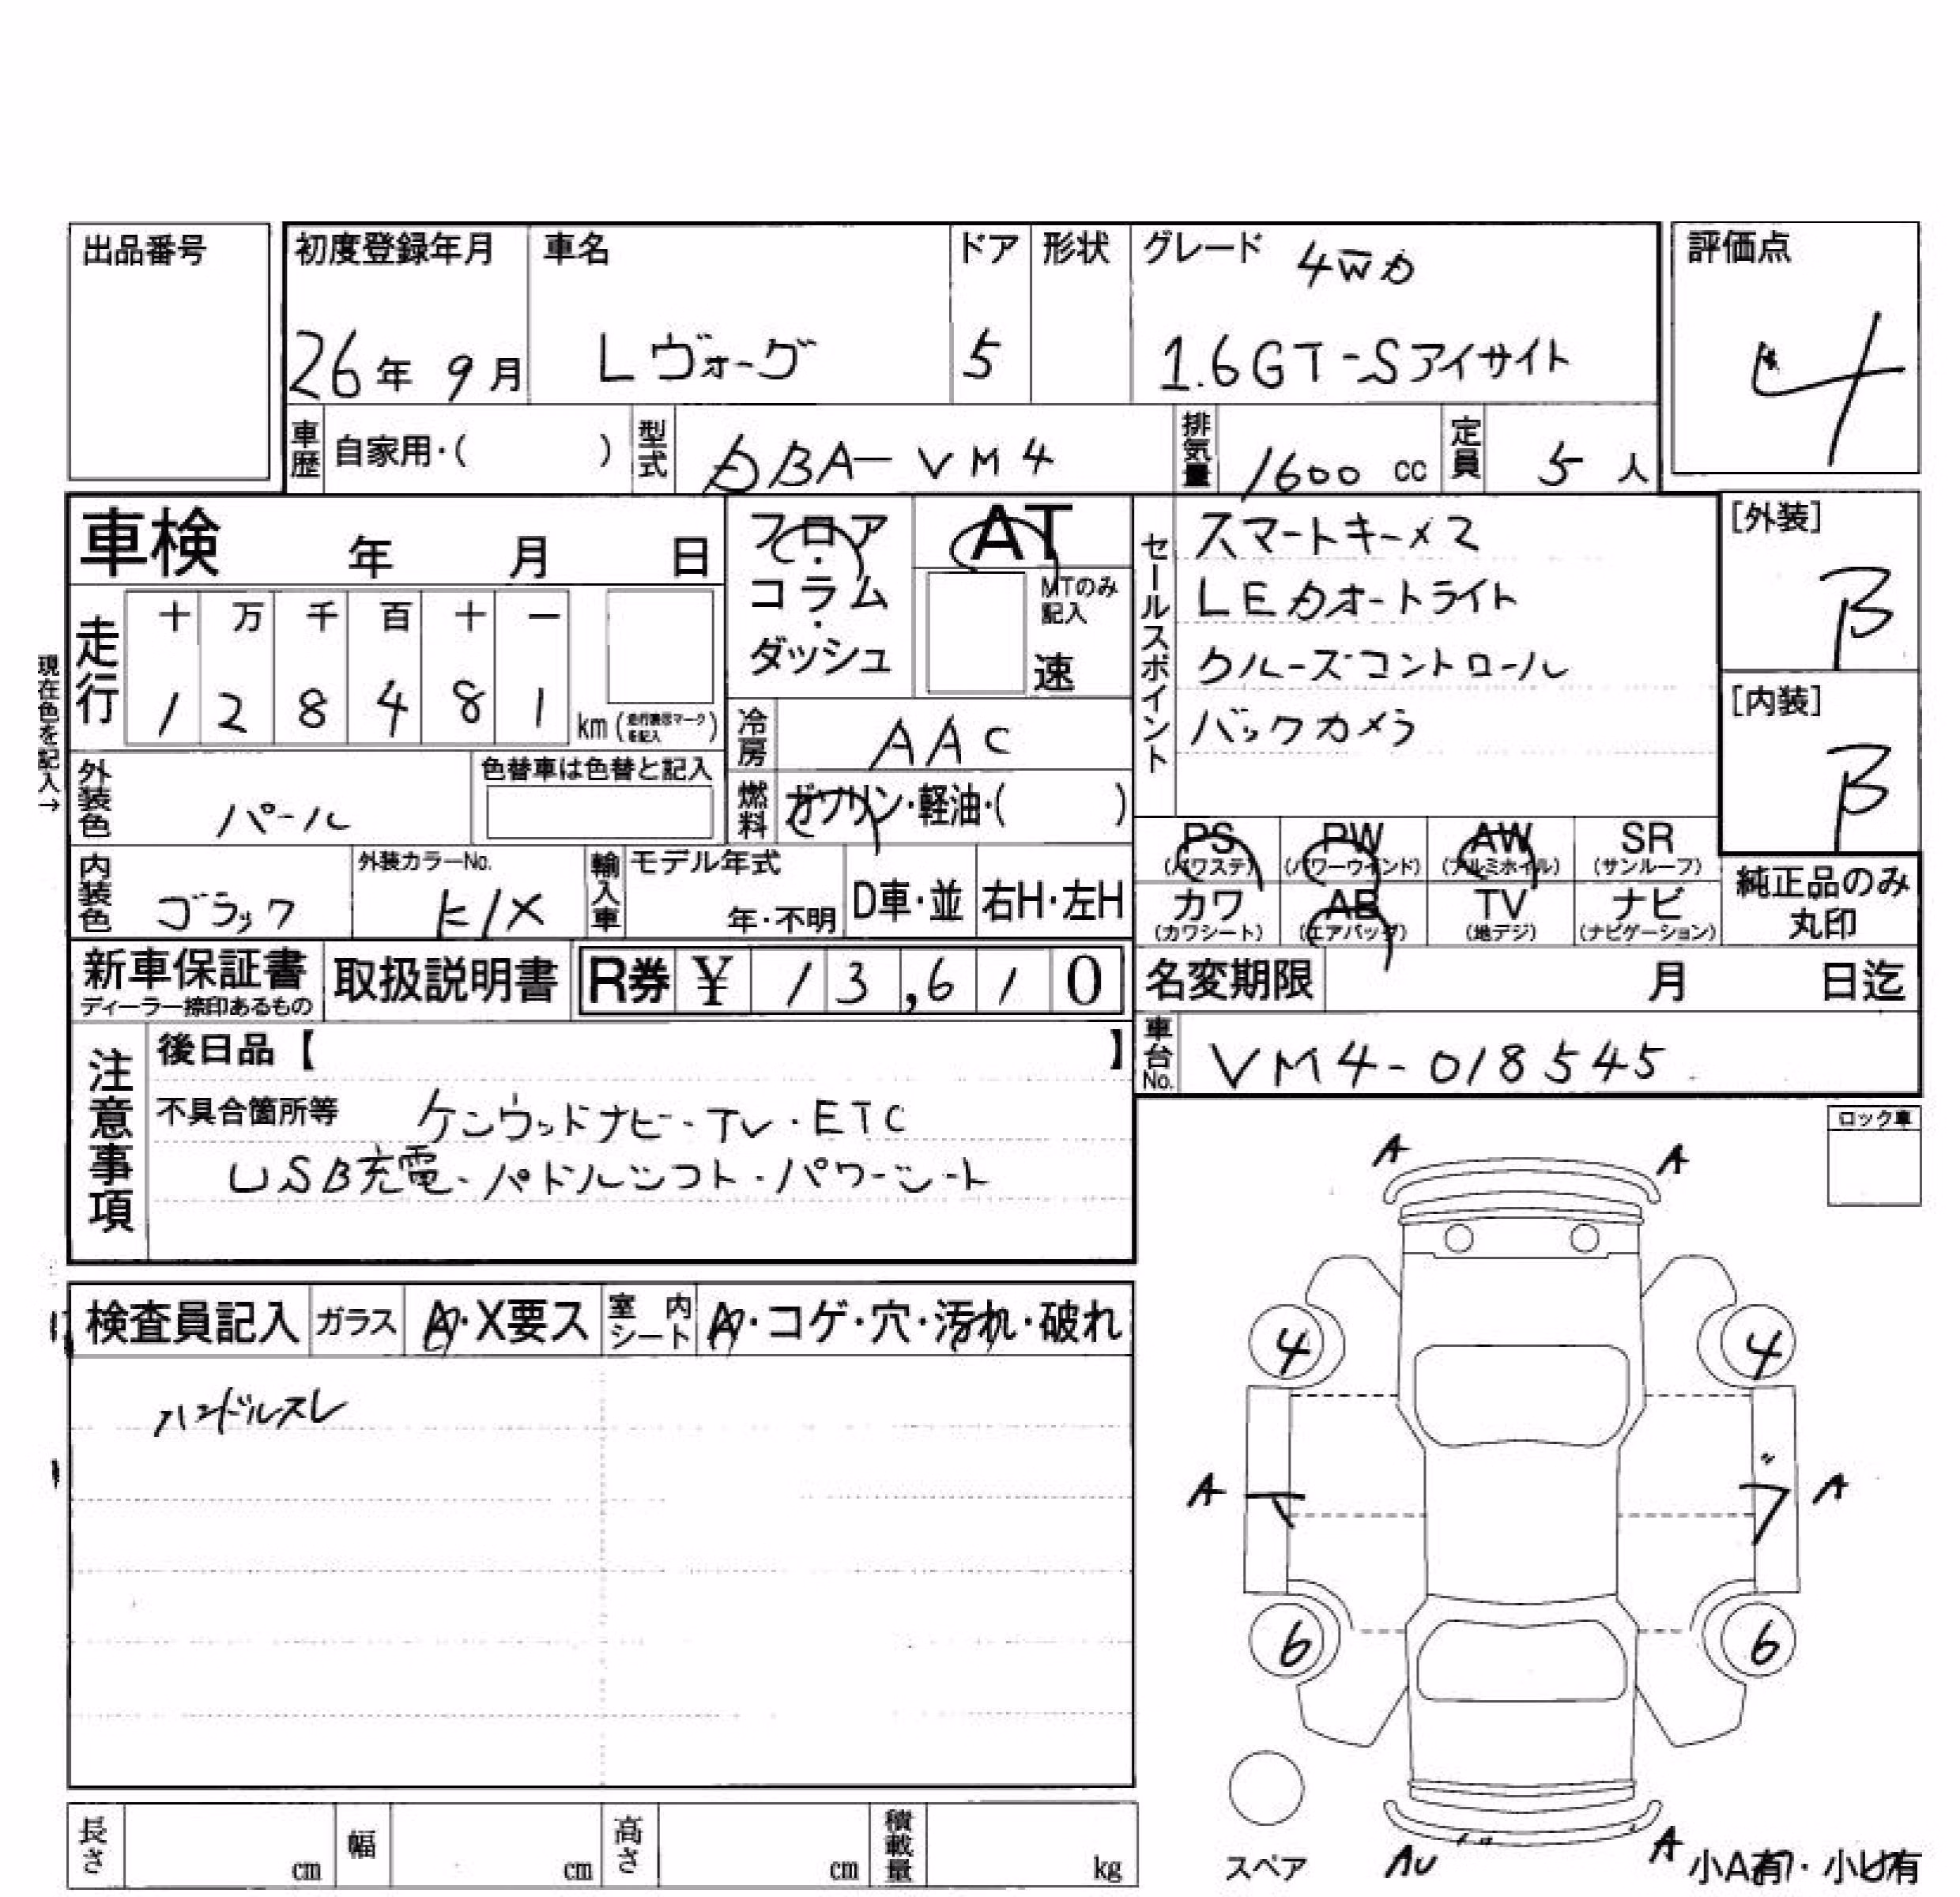 出品番号
初度登録年月 26年 9月
車名 Lヴォーグ
ドア 5
形状
グレード 4WD
1.6GT-Sアイサイト
評価点 4
車歴 自家用・( )
型式 DBA-VM4
排気量 1600 cc
定員 5 人
車検 年 月 日
フロア・コラム・ダッシュ
AT
MTのみ記入
速
セールスポイント
スマートキー×2
LEDオートライト
クルーズコントロール
バックカメラ
[外装] B
[内装] B
現在色を記入→
走行 十 万 千 百 十 一
1 2 8 4 8 1 km (走行表示マークを記入)
冷房 AAC
外装色 パール
色替車は色替と記入
燃料 ガソリン・軽油・( )
PS (パワステ)
PW (パワーウインド)
AW (アルミホイル)
SR (サンルーフ)
内装色 ブラック
外装カラーNo. K1X
輸入車 モデル年式
年・不明
D車・並
右H・左H
カワ (カワシート)
AB (エアバッグ)
TV (地デジ)
ナビ (ナビゲーション)
純正品のみ
丸印
新車保証書
ディーラー捺印あるもの
取扱説明書
R券 ¥ 13,610
名変期限 月 日迄
車台No. VM4-018545
注意事項
後日品【 】
不具合箇所等 ケンウッドナビ・TV・ETC
USB充電・パドルシフト・パワーシート
ロック車
A A
検査員記入
ガラス A・X要ス
室内シート A・コゲ・穴・汚れ・破れ
ハンドルスレ
4 4
A A
6 6
スペア
AU A
小A有・小U有
長さ cm
幅 cm
高さ cm
積載量 kg